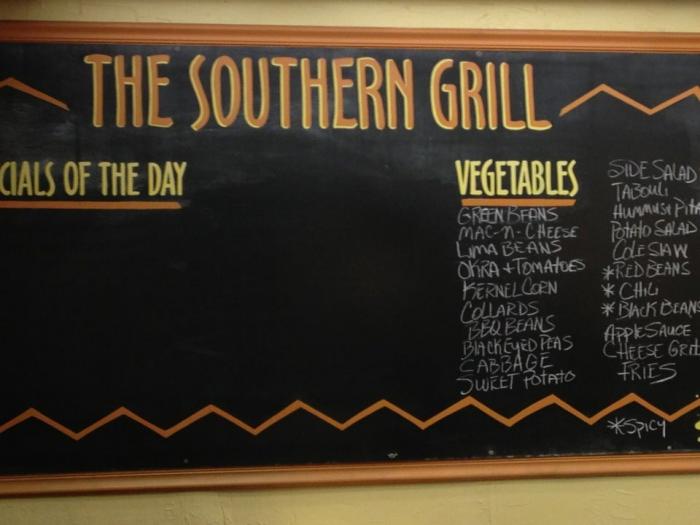 THE SOUTHERN GRILL
CIALS OF THE DAY
VEGETABLES
GREEN BEANS
MAC-N-CHEESE
LIMA BEANS
OKRA + TOMATOES
KERNEL CORN
COLLARDS
BBQ BEANS
BLACKEYED PEAS
CABBAGE
SWEET POTATO
SIDE SALAD
TABOULI
HUMMUS/PITA
POTATO SALAD
COLE SLAW
*RED BEANS
*CHILI
*BLACK BEANS
APPLE SAUCE
CHEESE GRIT
FRIES
*SPICY